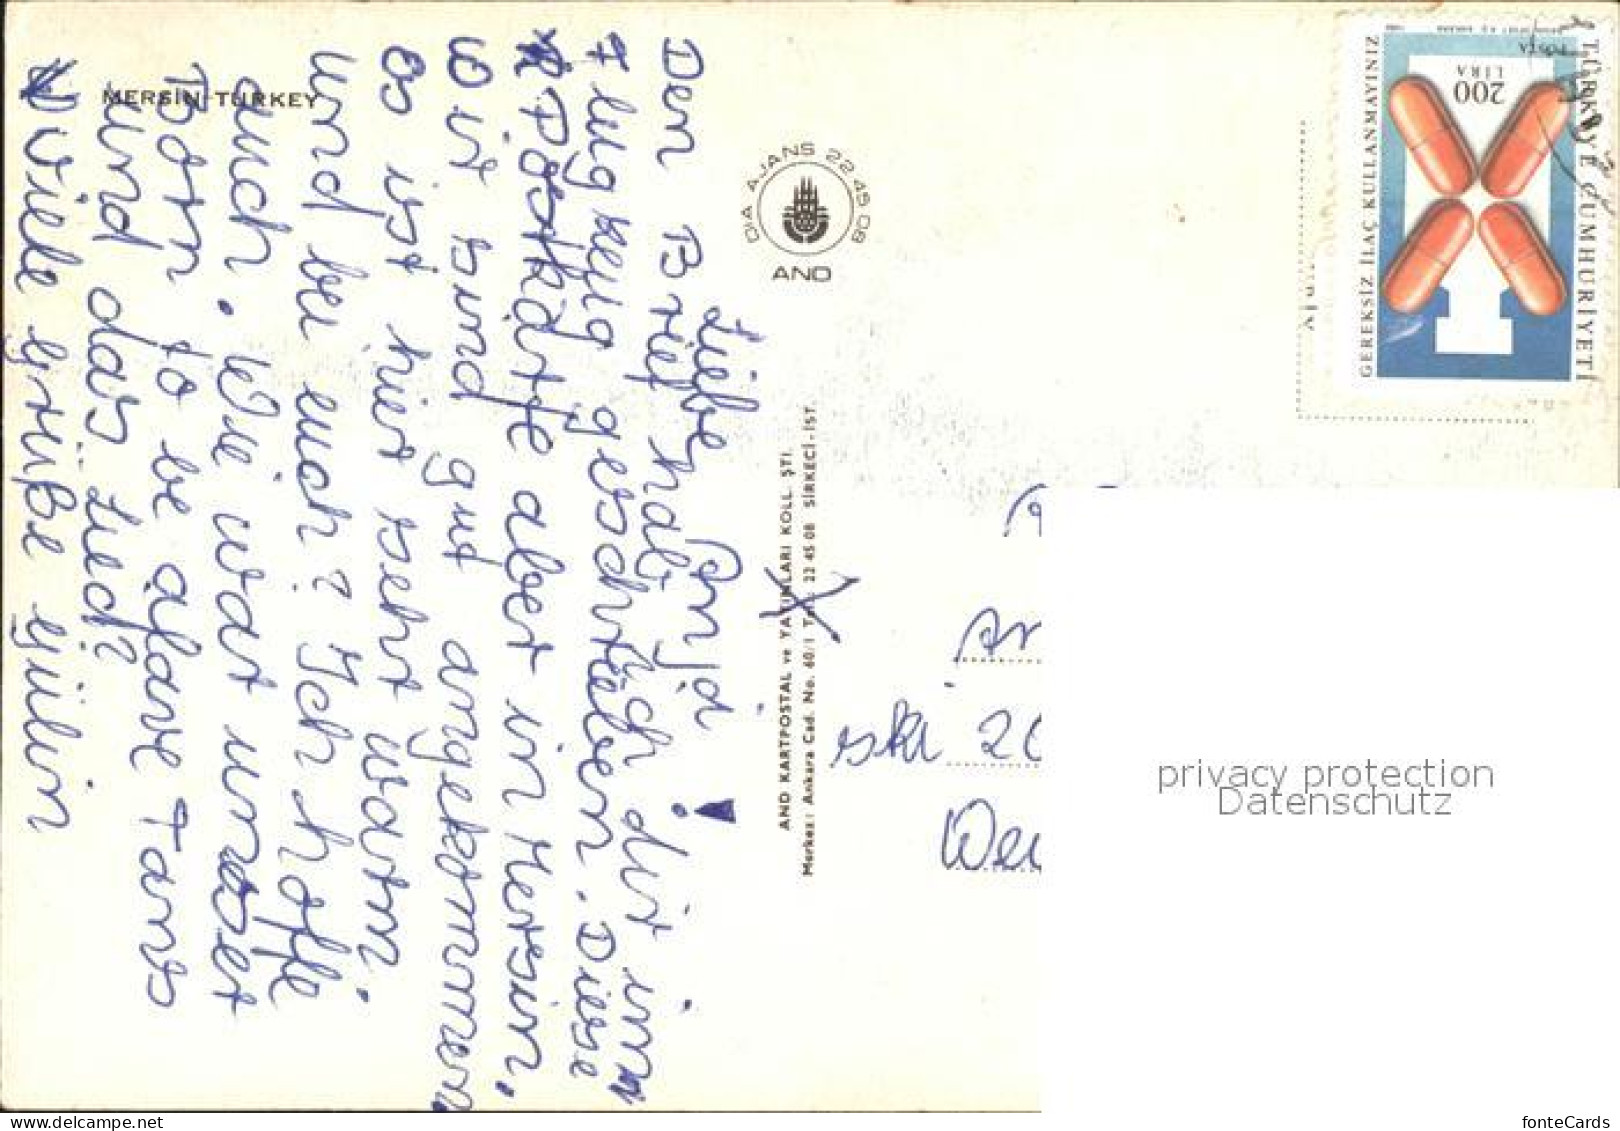 MERSİN-TURKEY
Liebe Anja!
Den Brief hab ich dir im
Flugzeug geschrieben. Diese
Postkarte aber in Mersin.
Wir sind gut angekommen
es ist hier sehr warm.
und bei euch? Ich hoffe
auch. Wie war unser
Born to be alave Tans
und das Lied?
Viele Grüße Gülin
DIA AJANS 22 45 08
AND
AND KARTPOSTAL ve YAYINLARI KOLL. ŞTİ.
Merkezi Ankara Cad. No. 60/1 Tel. 22 45 08 SİRKECİ-İST.
TÜRKİYE CUMHURİYETİ
POSTA
200
LİRA
GEREKSİZ İLAÇ KULLANMAYINIZ
privacy protection
Datenschutz
fonteCards